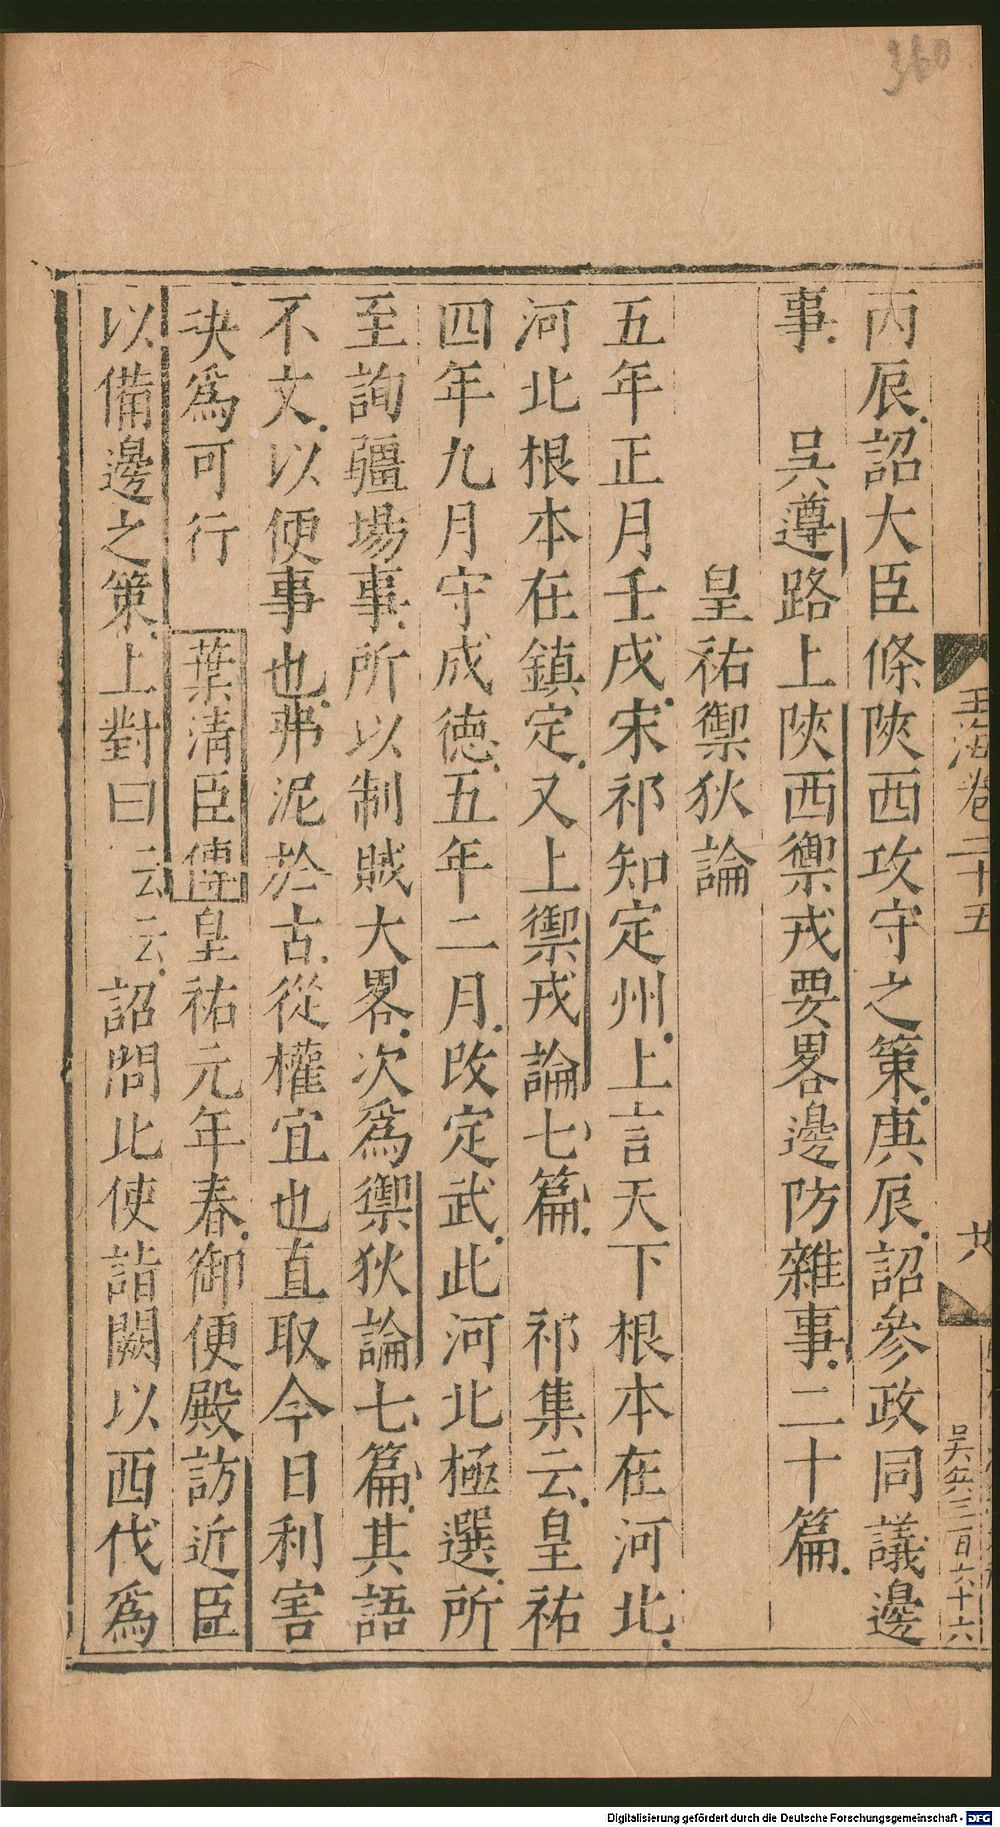 360
玉海卷二十五
吳兵三百六十六
丙辰詔大臣條陝西攻守之策庚辰詔參政同議邊
事 吳遵路上陝西禦戎要畧邊防雜事二十篇
皇祐禦狄論
五年正月壬戌宋祁知定州上言天下根本在河北
河北根本在鎮定又上禦戎論七篇 祁集云皇祐
四年九月守成德五年二月改定武此河北極選所
至詢疆場事所以制賊大畧次爲禦狄論七篇其語
不文以便事也弗泥於古從權宜也直取今日利害
決爲可行 葉清臣傳皇祐元年春御便殿訪近臣
以備邊之策上對曰云云詔問北使詣闕以西伐爲
Digitalisierung gefördert durch die Deutsche Forschungsgemeinschaft - DFG